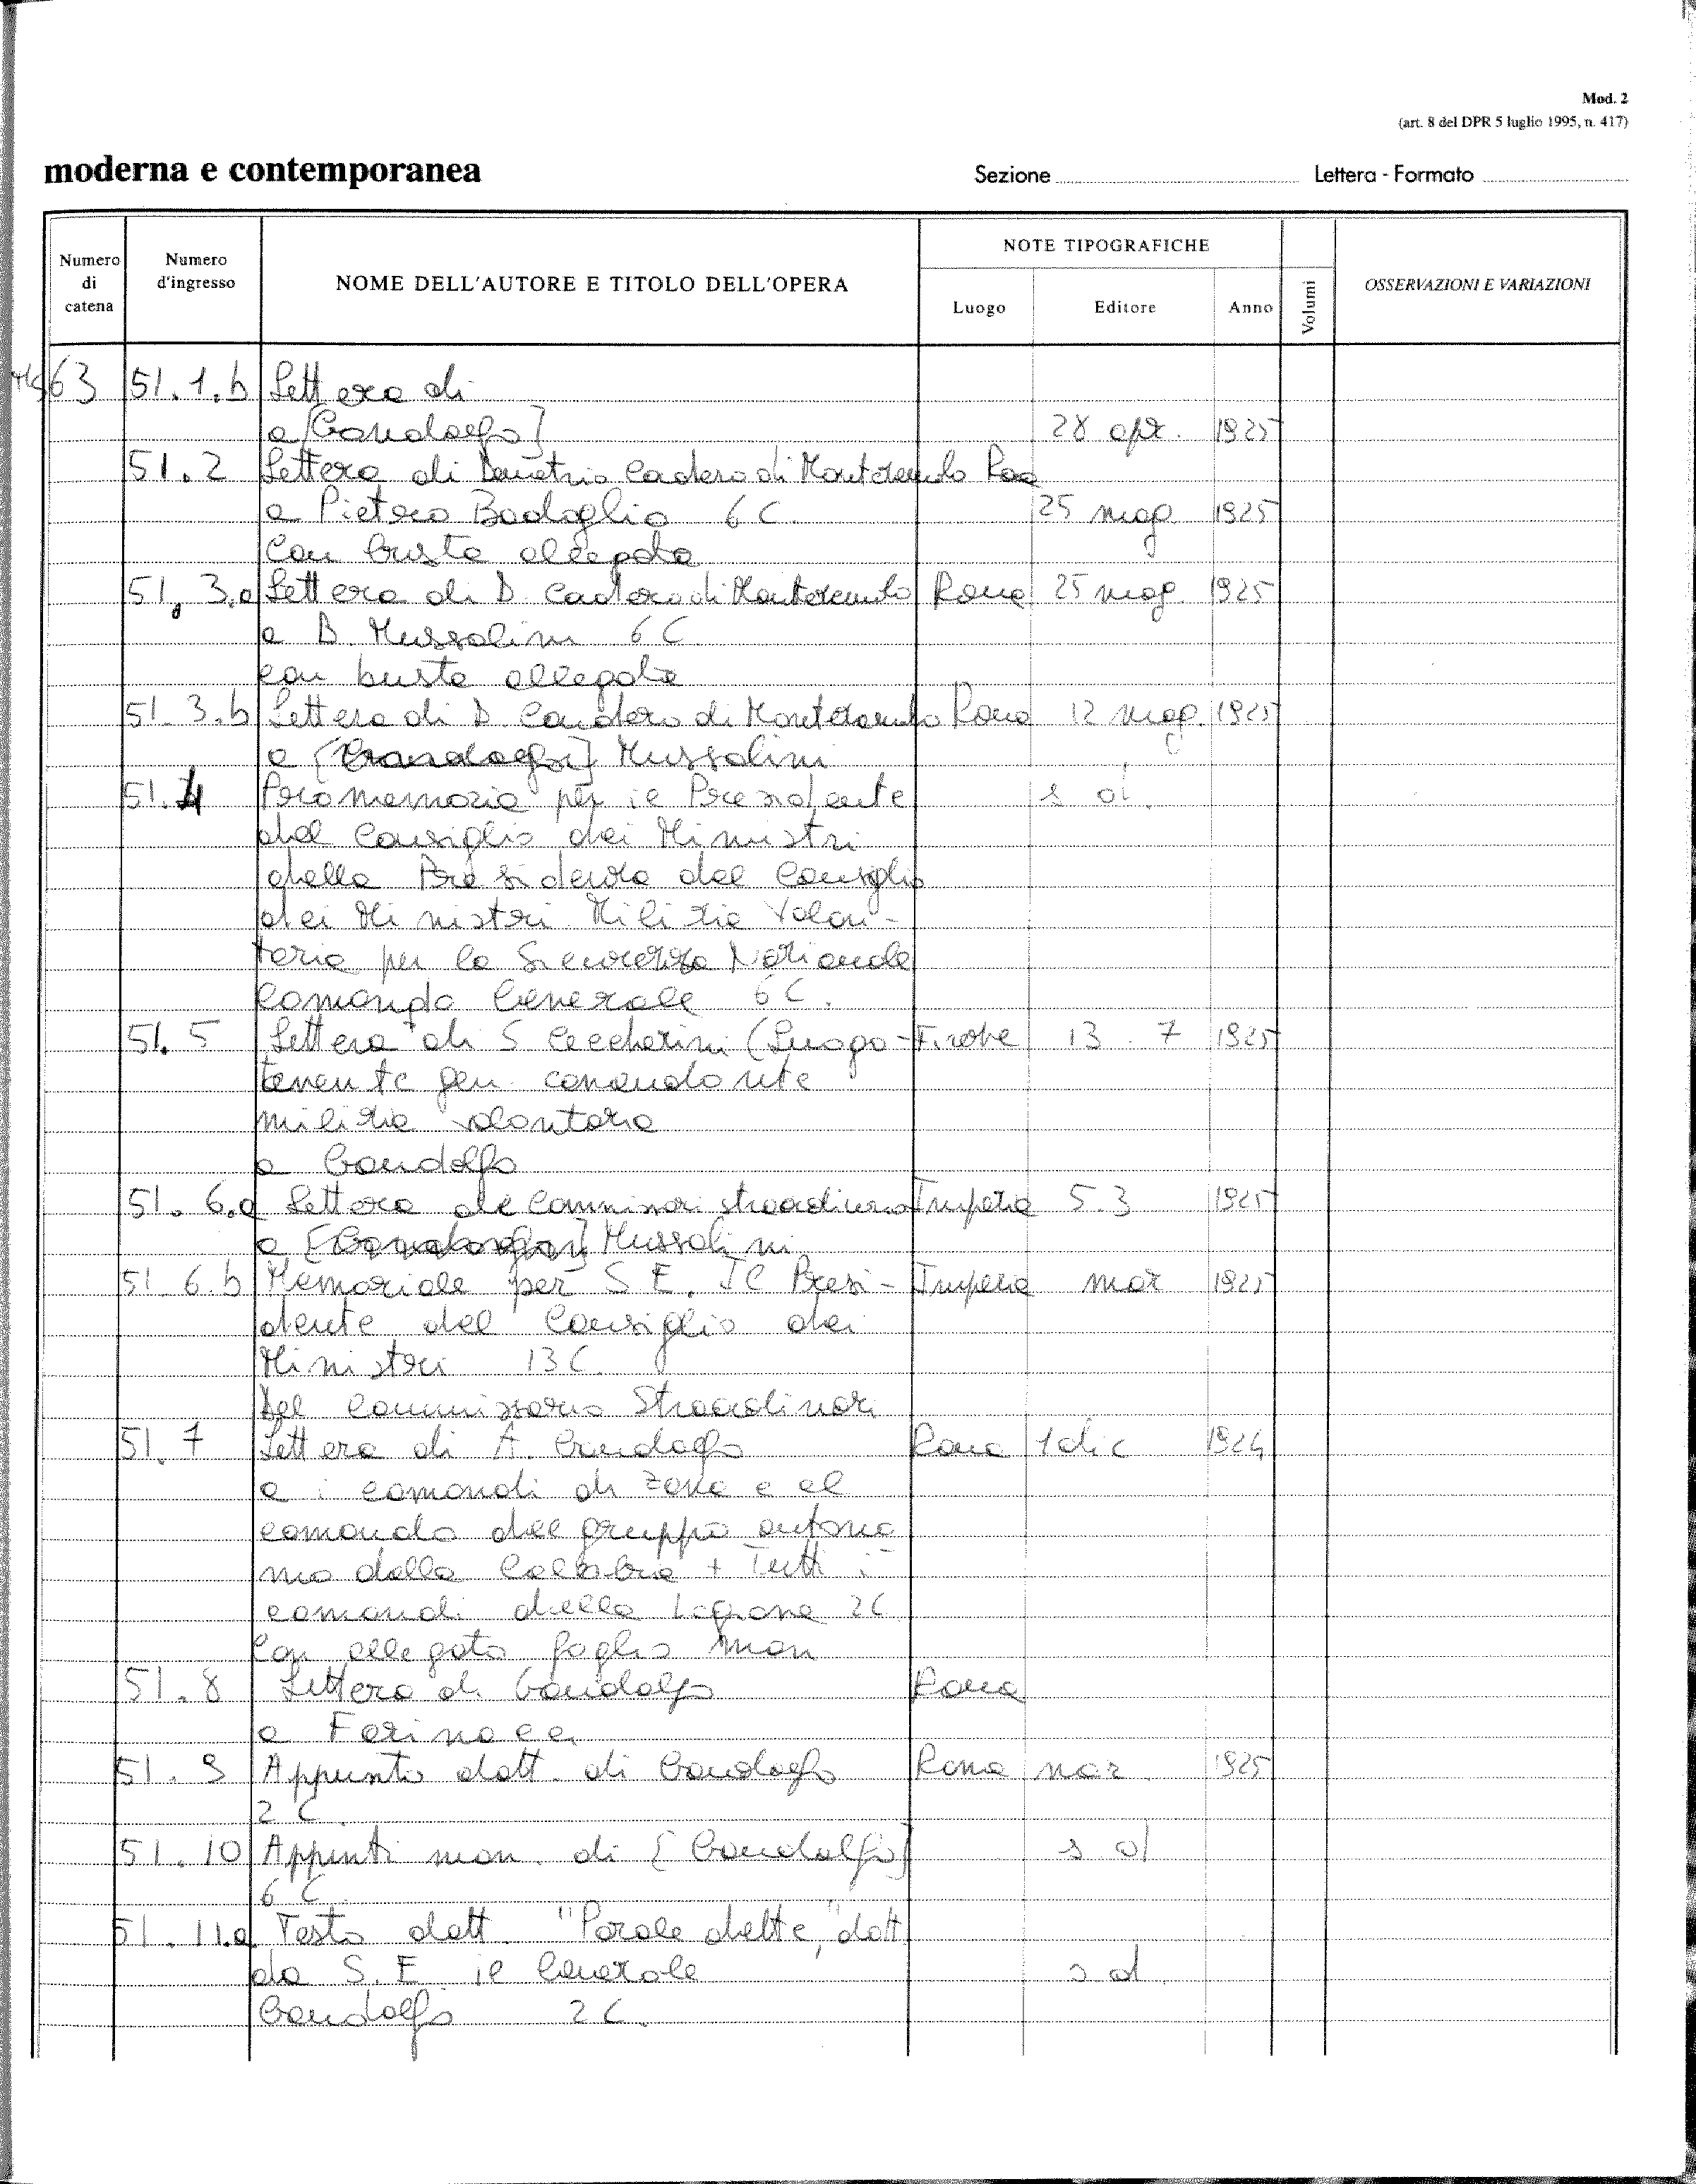 Mod. 2
(art. 8 del DPR 5 luglio 1995, n. 417)
moderna e contemporanea Sezione Lettera - Formato
Numero di catena Numero d'ingresso NOME DELL'AUTORE E TITOLO DELL'OPERA NOTE TIPOGRAFICHE Luogo Editore Anno Volumi OSSERVAZIONI E VARIAZIONI
Ms 63 51.1.b Lettera di
a [Gandolfo] 28 apr. 1925
51.2 Lettera di Demetrio Cadero di
a Pietro Badoglio 6 C. 25 mag 1925
con busta allegata
51, 3.a Lettera di D. di Roma 25 mag. 1925
a B. Mussolini 6 C
con busta allegata
51.3.b Lettera di D. di Roma 12 mag. 1925
a [Gandolfo] Mussolini
51.4 Promemoria per il Presidente s d.
del Consiglio dei Ministri
della Presidenza del Consiglio
dei Ministri Milizia Volon-
taria per la Sicurezza Nazionale
Comando Generale 6 C.
51. 5 Lettera di S Ceccherini (Luogo- Firenze 13. 7 1925
tenente gen. comandante
milizia volontaria
a Gandolfo
51. 6.a Lettera del Imperia 5.3 1925
a [Gandolfo] Mussolini
51.6.b Memoriale per S E. Il Presi- Imperia mar 1925
dente del Consiglio dei
Ministri 13 C.
Del Commissario
51.7 Lettera di A. Gandolfo Roma 1 dic 1924
a i comandi di zona e al
comando del gruppo autono
mo della Calabria + Tutti i
comandi della Legione 2 C
Con allegato foglio man
51.8 Lettera di Gandolfo Roma
a Farinacci
51.9 Appunto datt. di Gandolfo Roma mar. 1925
2 C.
51.10 Appunti man. di [Gandolfo] s d
6 C.
51.11.a Testo datt. "Parole dette," datt
da S. E il Generale s d.
Gandolfo 2 C.